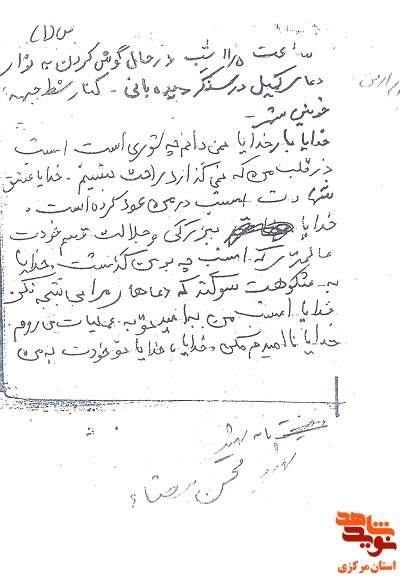 ص (۱)
ساعت ۱۱/۵ شب در حال گوش کردن به نوار
دعای کمیل در سنگر دیده بانی - کنار شط جبهه
خونین شهر -
خدایا بار خدایا نمی دانم چه شوری است است
در قلب من که نمی گذارد راحت بنشینم. خدایا عشق
شهادت امشب در من عود کرده است.
خدایا به بزرگی و جلالت قسم خودت
عالمی که امشب چه بر من گذشت. خدایا
به شکوهت سوگند که دعاهای مرا بی نتیجه نکن
خدایا امشب من به امید تو به عملیات می روم
خدایا ناامیدم مکن، خدایا، خدایا تو خودت به من
وصیت نامه شهید
شهید محسن
شاهد
نوید
استان مرکزی